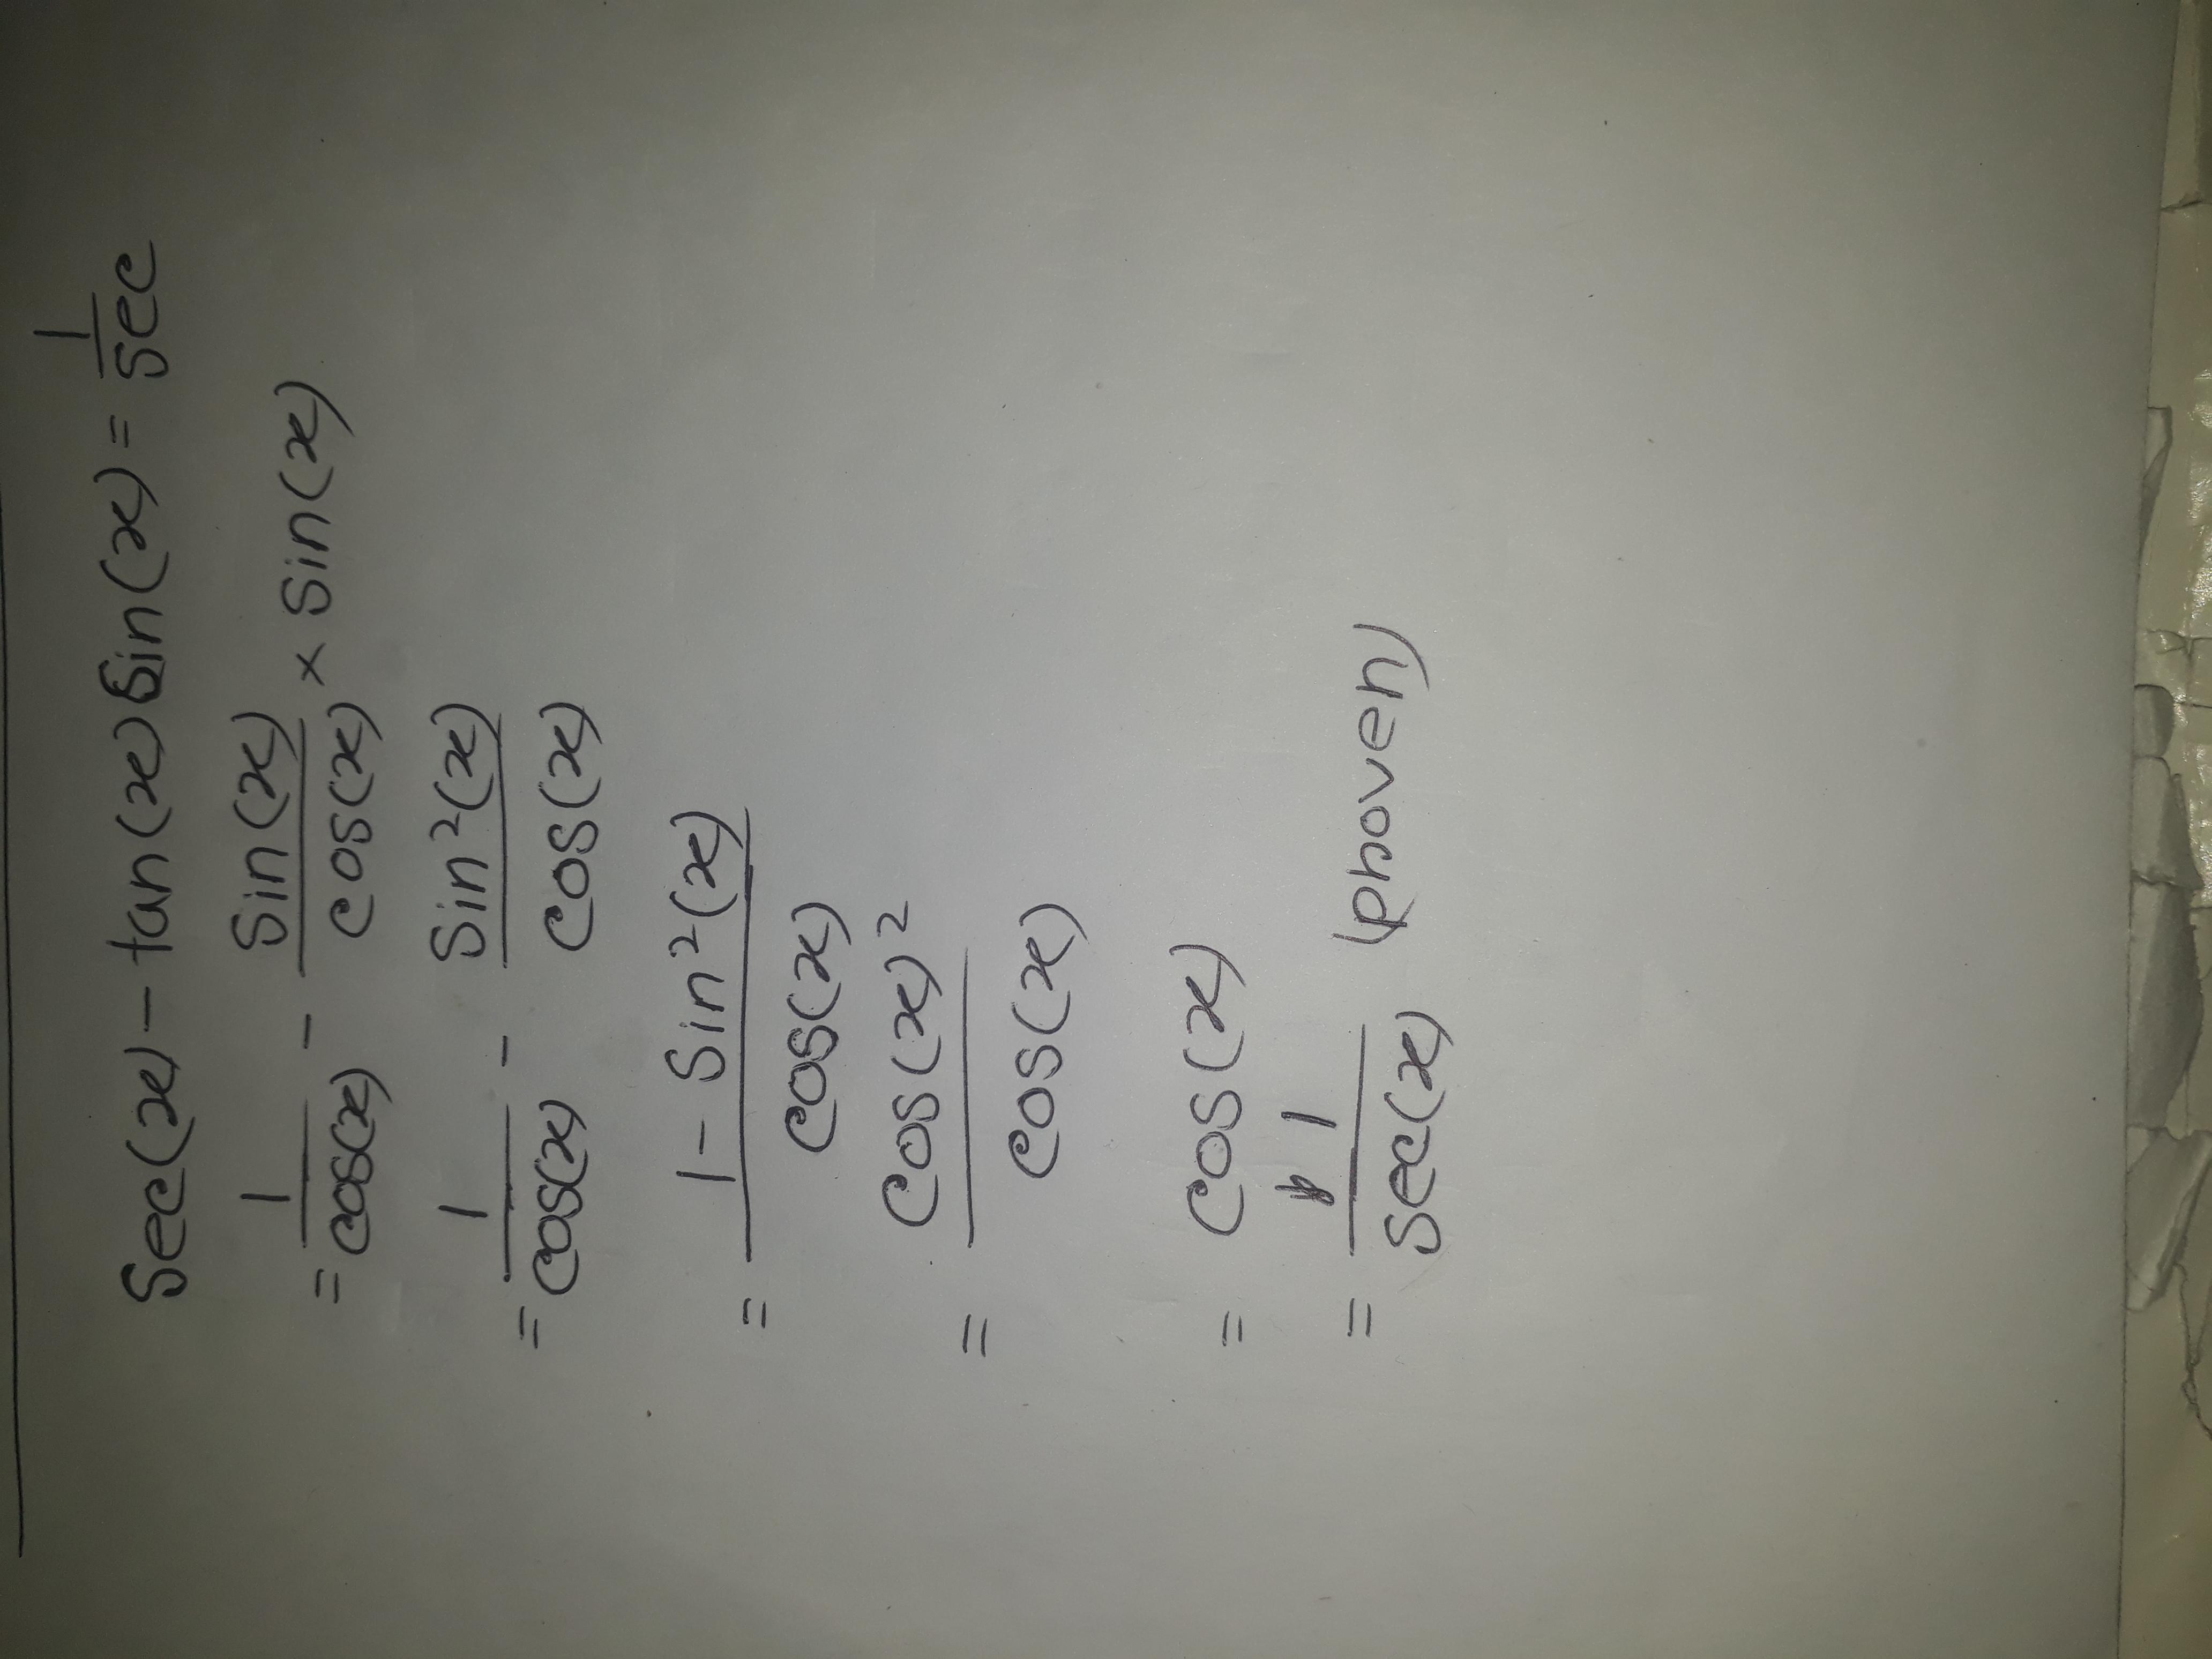 Sec(x) - tan(x) Sin(x) = 1/sec
= 1/cos(x) - Sin(x)/cos(x) × Sin(x)
= 1/cos(x) - Sin²(x)/cos(x)
= 1 - Sin²(x)/cos(x)
= cos(x)²/cos(x)
= cos(x)
= 1/sec(x) (proven)